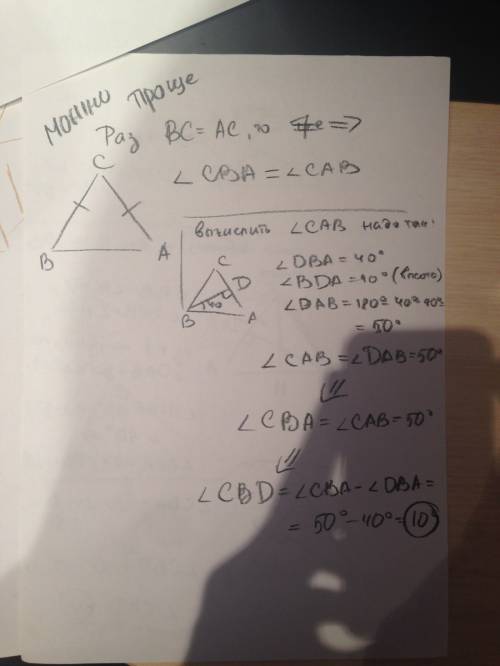 можно проще
Раз BC = AC, то =>
∠ CBA = ∠CAB
C
B A
вычислить ∠CAB надо так:
C
D
40°
B A
∠DBA = 40°
∠BDA = 90° (высота)
∠DAB = 180°-40°-90°
= 50°
∠CAB = ∠DAB = 50°
⇓
∠CBA = ∠CAB = 50°
⇓
∠CBD = ∠CBA - ∠DBA =
= 50° - 40° = 10°